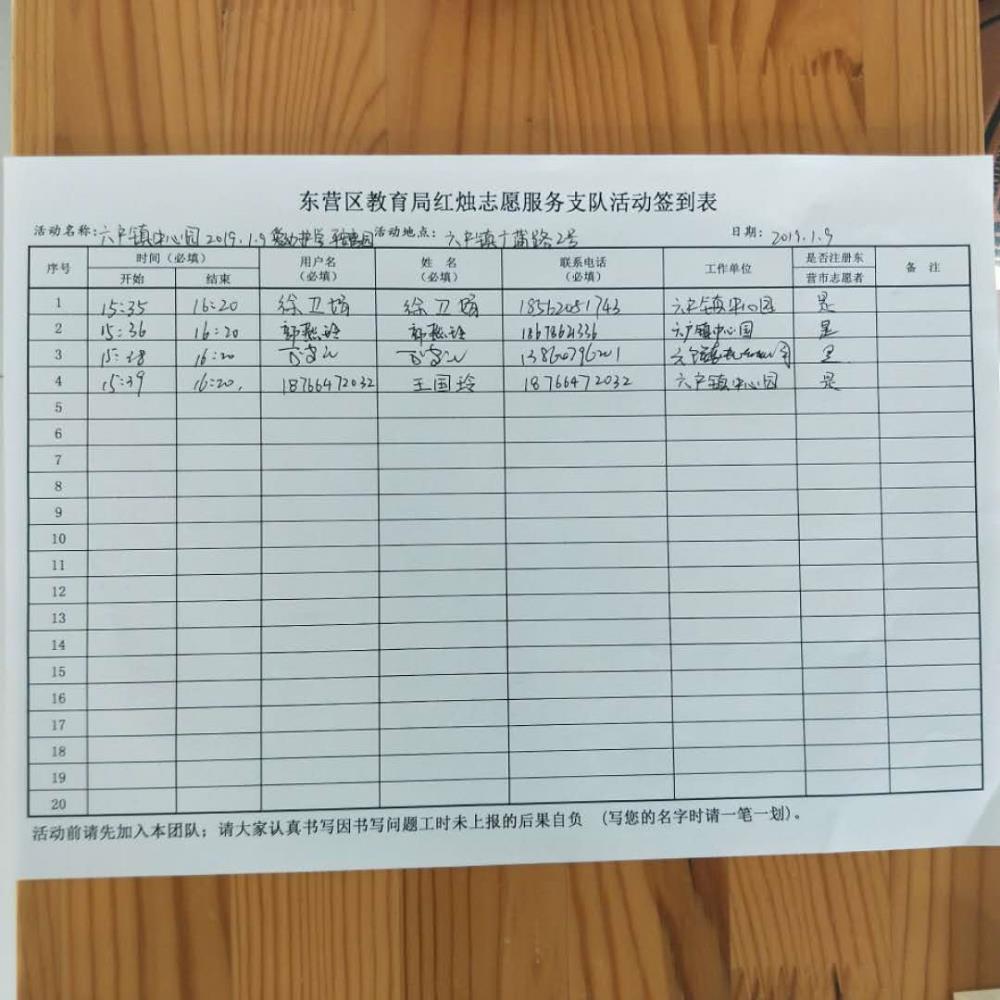 东营区教育局红烛志愿服务支队活动签到表
活动名称:六户镇中心园2019.1.9 爱幼护学 活动地点:六户镇广蒲路2号 日期:2019.1.9
序号 时间(必填) 用户名(必填) 姓名(必填) 联系电话(必填) 工作单位 是否注册东营市志愿者 备注
开始 结束
1 15:35 16:20 徐卫娟 徐卫娟 18562051743 六户镇中心园 是
2 15:36 16:20 六户镇中心园 是
3 15:38 16:20 13860796201 是
4 15:39 16:20. 18766472032 王国玲 18766472032 六户镇中心园 是
5
6
7
8
9
10
11
12
13
14
15
16
17
18
19
20
活动前请先加入本团队;请大家认真书写因书写问题工时未上报的后果自负 (写您的名字时请一笔一划)。